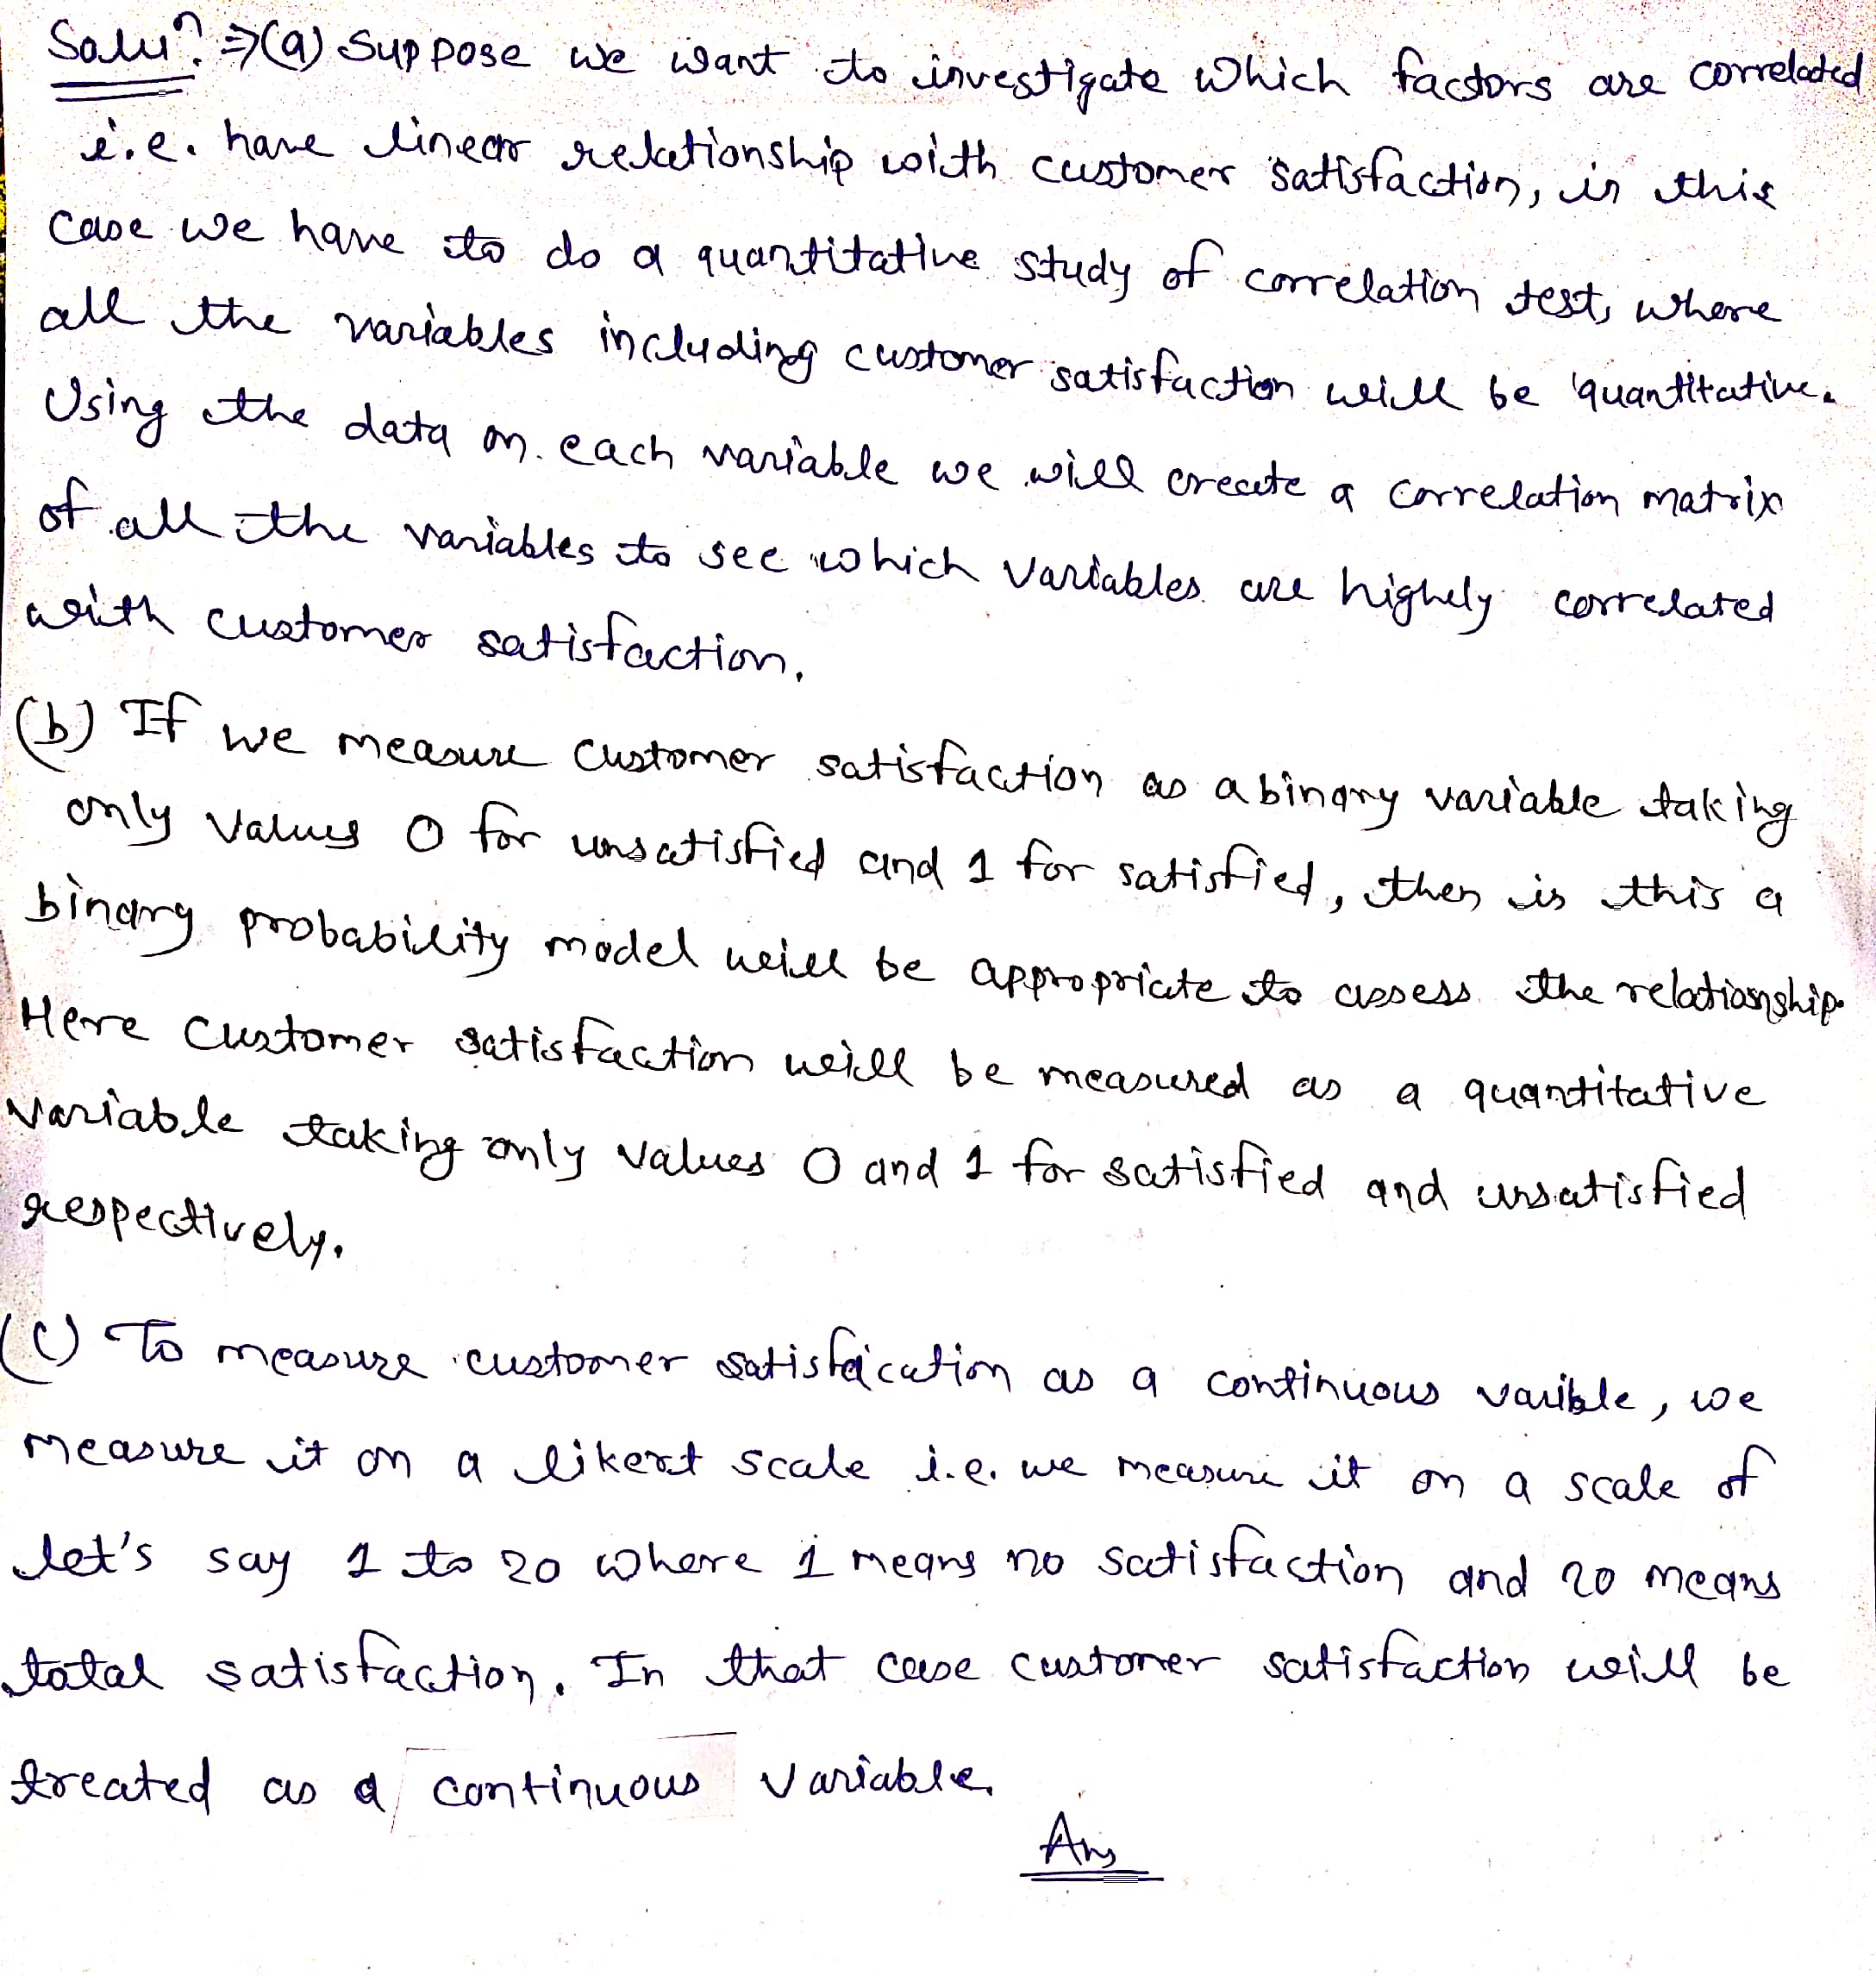 Solun. ⇒ (a) Suppose we want to investigate which factors are correlated
i.e. have linear relationship with customer satisfaction, in this
case we have to do a quantitative study of correlation test, where
all the variables including customer satisfaction will be quantitative.
Using the data on each variable we will create a correlation matrix
of all the variables to see which variables are highly correlated
with customer satisfaction.
(b) If we measure customer satisfaction as a binary variable taking
only values 0 for unsatisfied and 1 for satisfied, then is this a
binary probability model will be appropriate to assess the relationship.
Here customer satisfaction will be measured as a quantitative
variable taking only values 0 and 1 for satisfied and unsatisfied
respectively.
(c) To measure customer satisfaication as a continuous varible, we
measure it on a likert scale i.e. we measure it on a scale of
let's say 1 to 20 where 1 means no satisfaction and 20 means
total satisfaction. In that case customer satisfaction will be
treated as a continuous variable.
Ans